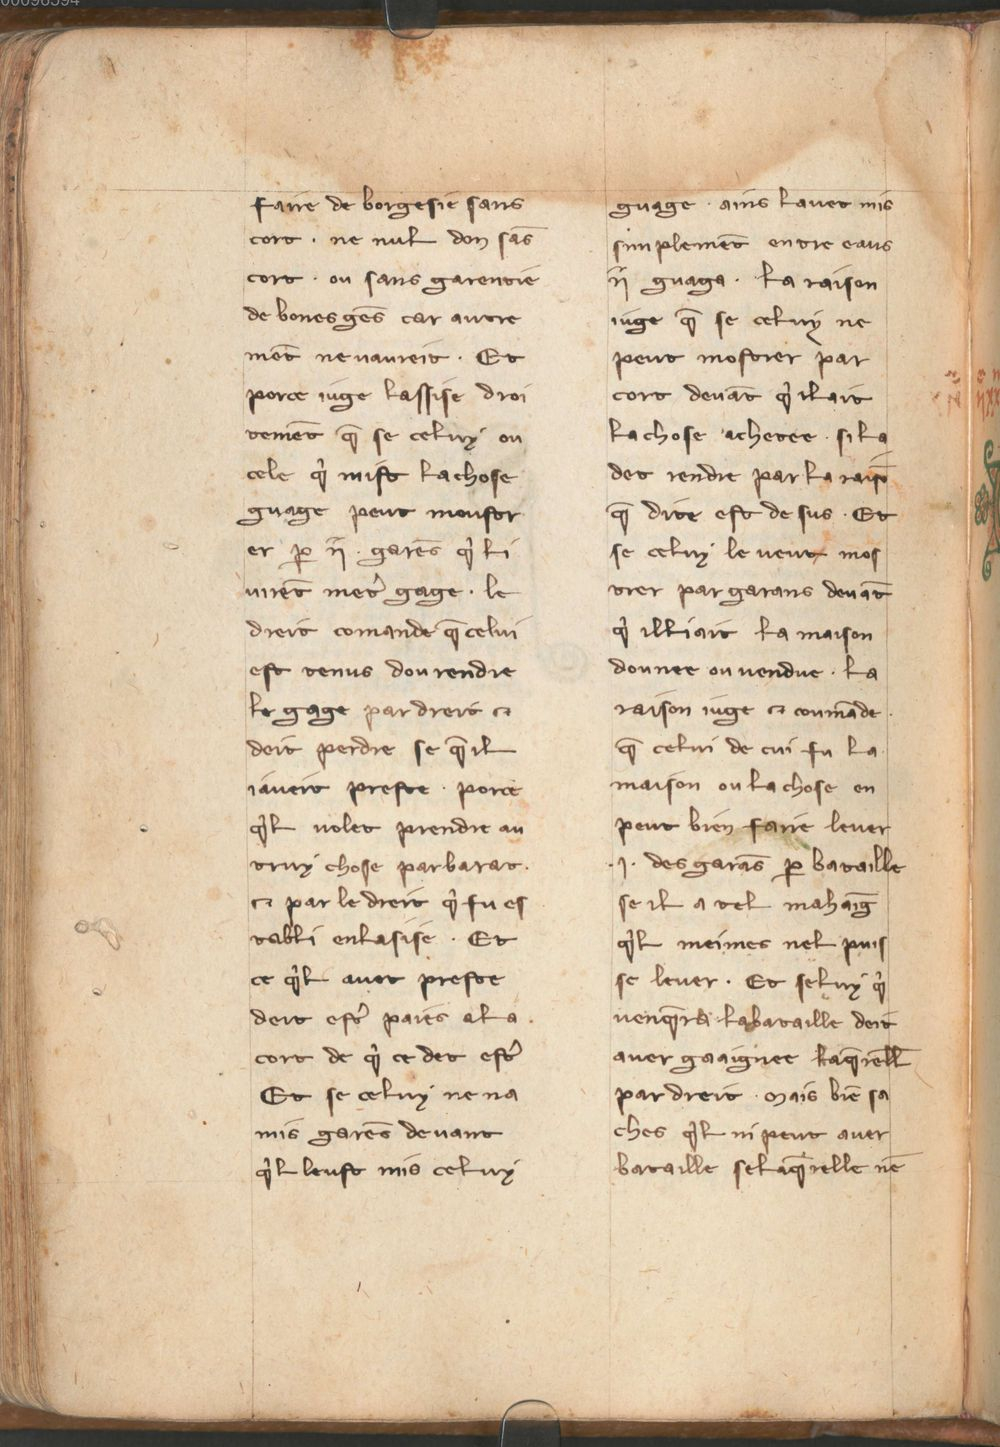 00096594
faire de borgesie sans
cort . ne nul don sãs
cort . ou sans garentie
de bones gẽs car autre
mẽt ne vaureit . Et
porce iuge lassise droi
temẽt q̃ se celuy ou
cele q̾ mist la chose
guage peut moustr
er ꝑ .ij. garẽs q̾ li
virẽt metr̾ gage . le
dreit comande q̃ celui
est tenus dou rendre
le gage par dreit ⁊
deit perdre se q̃ il
i aveit preste . porce
q̾l volet prendre au
truy chose par barat .
⁊ par le dreit q̾ fu es
tabli en lasise . Et
ce q̾l avet preste
deit estr̾ paiẽs a la .
cort de q̾ ce det estr̾
Et se celuy ne na
mis garẽs devant
q̾l leust mis celuy
guage . ains lavet mis
simplemẽt entre eaus
.ij. guage . la raison
iuge q̃ se celuy ne
peut mostrer par
cort devãt q̾ il ait
la chose achetee . si la
det rendre par la raisõ
q̃ dite est de sus . Et
se celuy le veut mos
trer par garans devãt
q̾ il li ait la maison
donnee ou vendue . la
raison iuge ⁊ coumãde .
q̃ celui de cui fu la
maison ou la chose en
peut bien faire lever
.j. des garãs ꝑ bataille
se il a tel mahaig̃
q̾l meimes nel puis
se lever . Et seluy q̾
venq̃ra la bataille deit
aver gaaignee la q̃rell̃
par dreit . Mais biẽ sa
ches q̾l ni peut aver
bataille se la q̃relle nẽ